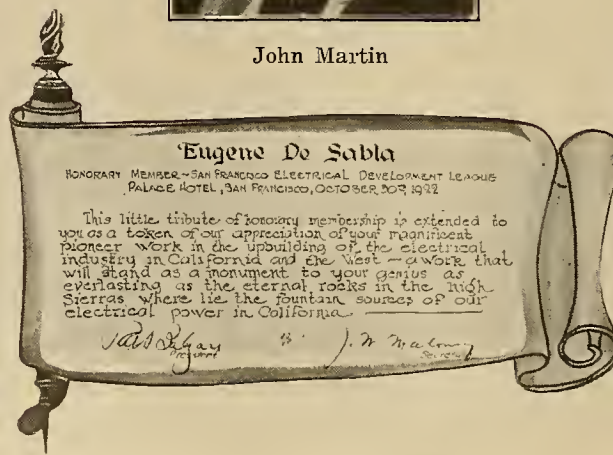 John Martin
Eugene De Sabla
HONORARY MEMBER ~ SAN FRANCISCO ELECTRICAL DEVELOPMENT LEAGUE
PALACE HOTEL, SAN FRANCISCO, OCTOBER 30, 1922
This little tribute of honorary membership is extended to
you as a token of our appreciation of your magnificent
pioneer work in the upbuilding of the electrical
industry in California and the West — a work that
will stand as a monument to your genius as
everlasting as the eternal rocks in the high
Sierras where lie the fountain sources of our
electrical power in California
President
Secretary